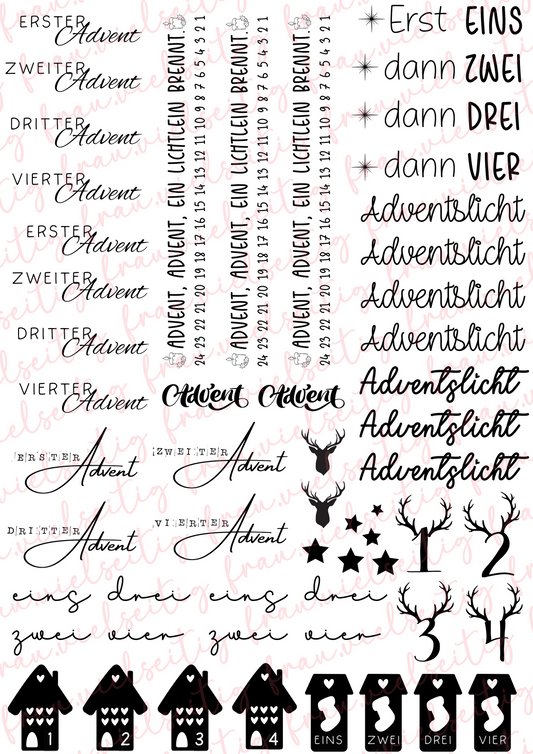 ERSTER
Advent
ZWEITER
Advent
DRITTER
Advent
VIERTER
Advent
ERSTER
Advent
ZWEITER
Advent
DRITTER
Advent
VIERTER
Advent
ADVENT, ADVENT, EIN LICHTLEIN BRENNT.
24 23 22 21 20 19 18 17 16 15 14 13 12 11 10 9 8 7 6 5 4 3 2 1
ADVENT, ADVENT, EIN LICHTLEIN BRENNT.
24 23 22 21 20 19 18 17 16 15 14 13 12 11 10 9 8 7 6 5 4 3 2 1
ADVENT, ADVENT, EIN LICHTLEIN BRENNT.
24 23 22 21 20 19 18 17 16 15 14 13 12 11 10 9 8 7 6 5 4 3 2 1
Erst EINS
dann ZWEI
dann DREI
dann VIER
Adventslicht
Adventslicht
Adventslicht
Adventslicht
Adventslicht
Adventslicht
Adventslicht
Advent Advent
ERSTER Advent
ZWEITER Advent
DRITTER Advent
VIERTER Advent
1 2
3 4
eins drei eins drei
zwei vier zwei vier
1 2 3 4
EINS ZWEI DREI VIER
frau.vielseitig